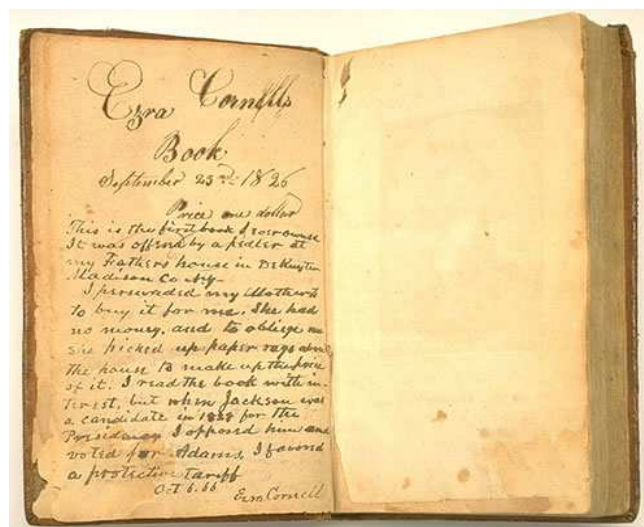 Ezra Cornell's
Book
September 23rd 1826
Price one dollar
This is the first book I ever owned
It was offered by a pedler at
my Fathers house in DeRuyter
Madison Co NY—
I persuaded my Mother
to buy it for me. She had
no money, and to obliege me
she picked up paper rags about
the house to make up the price
of it. I read the book with in-
terest, but when Jackson was
a candidate in 1828 for the
Presidency I opposed him and
voted for Adams, I favored
a protective tariff
Oct 6. 66
Ezra Cornell